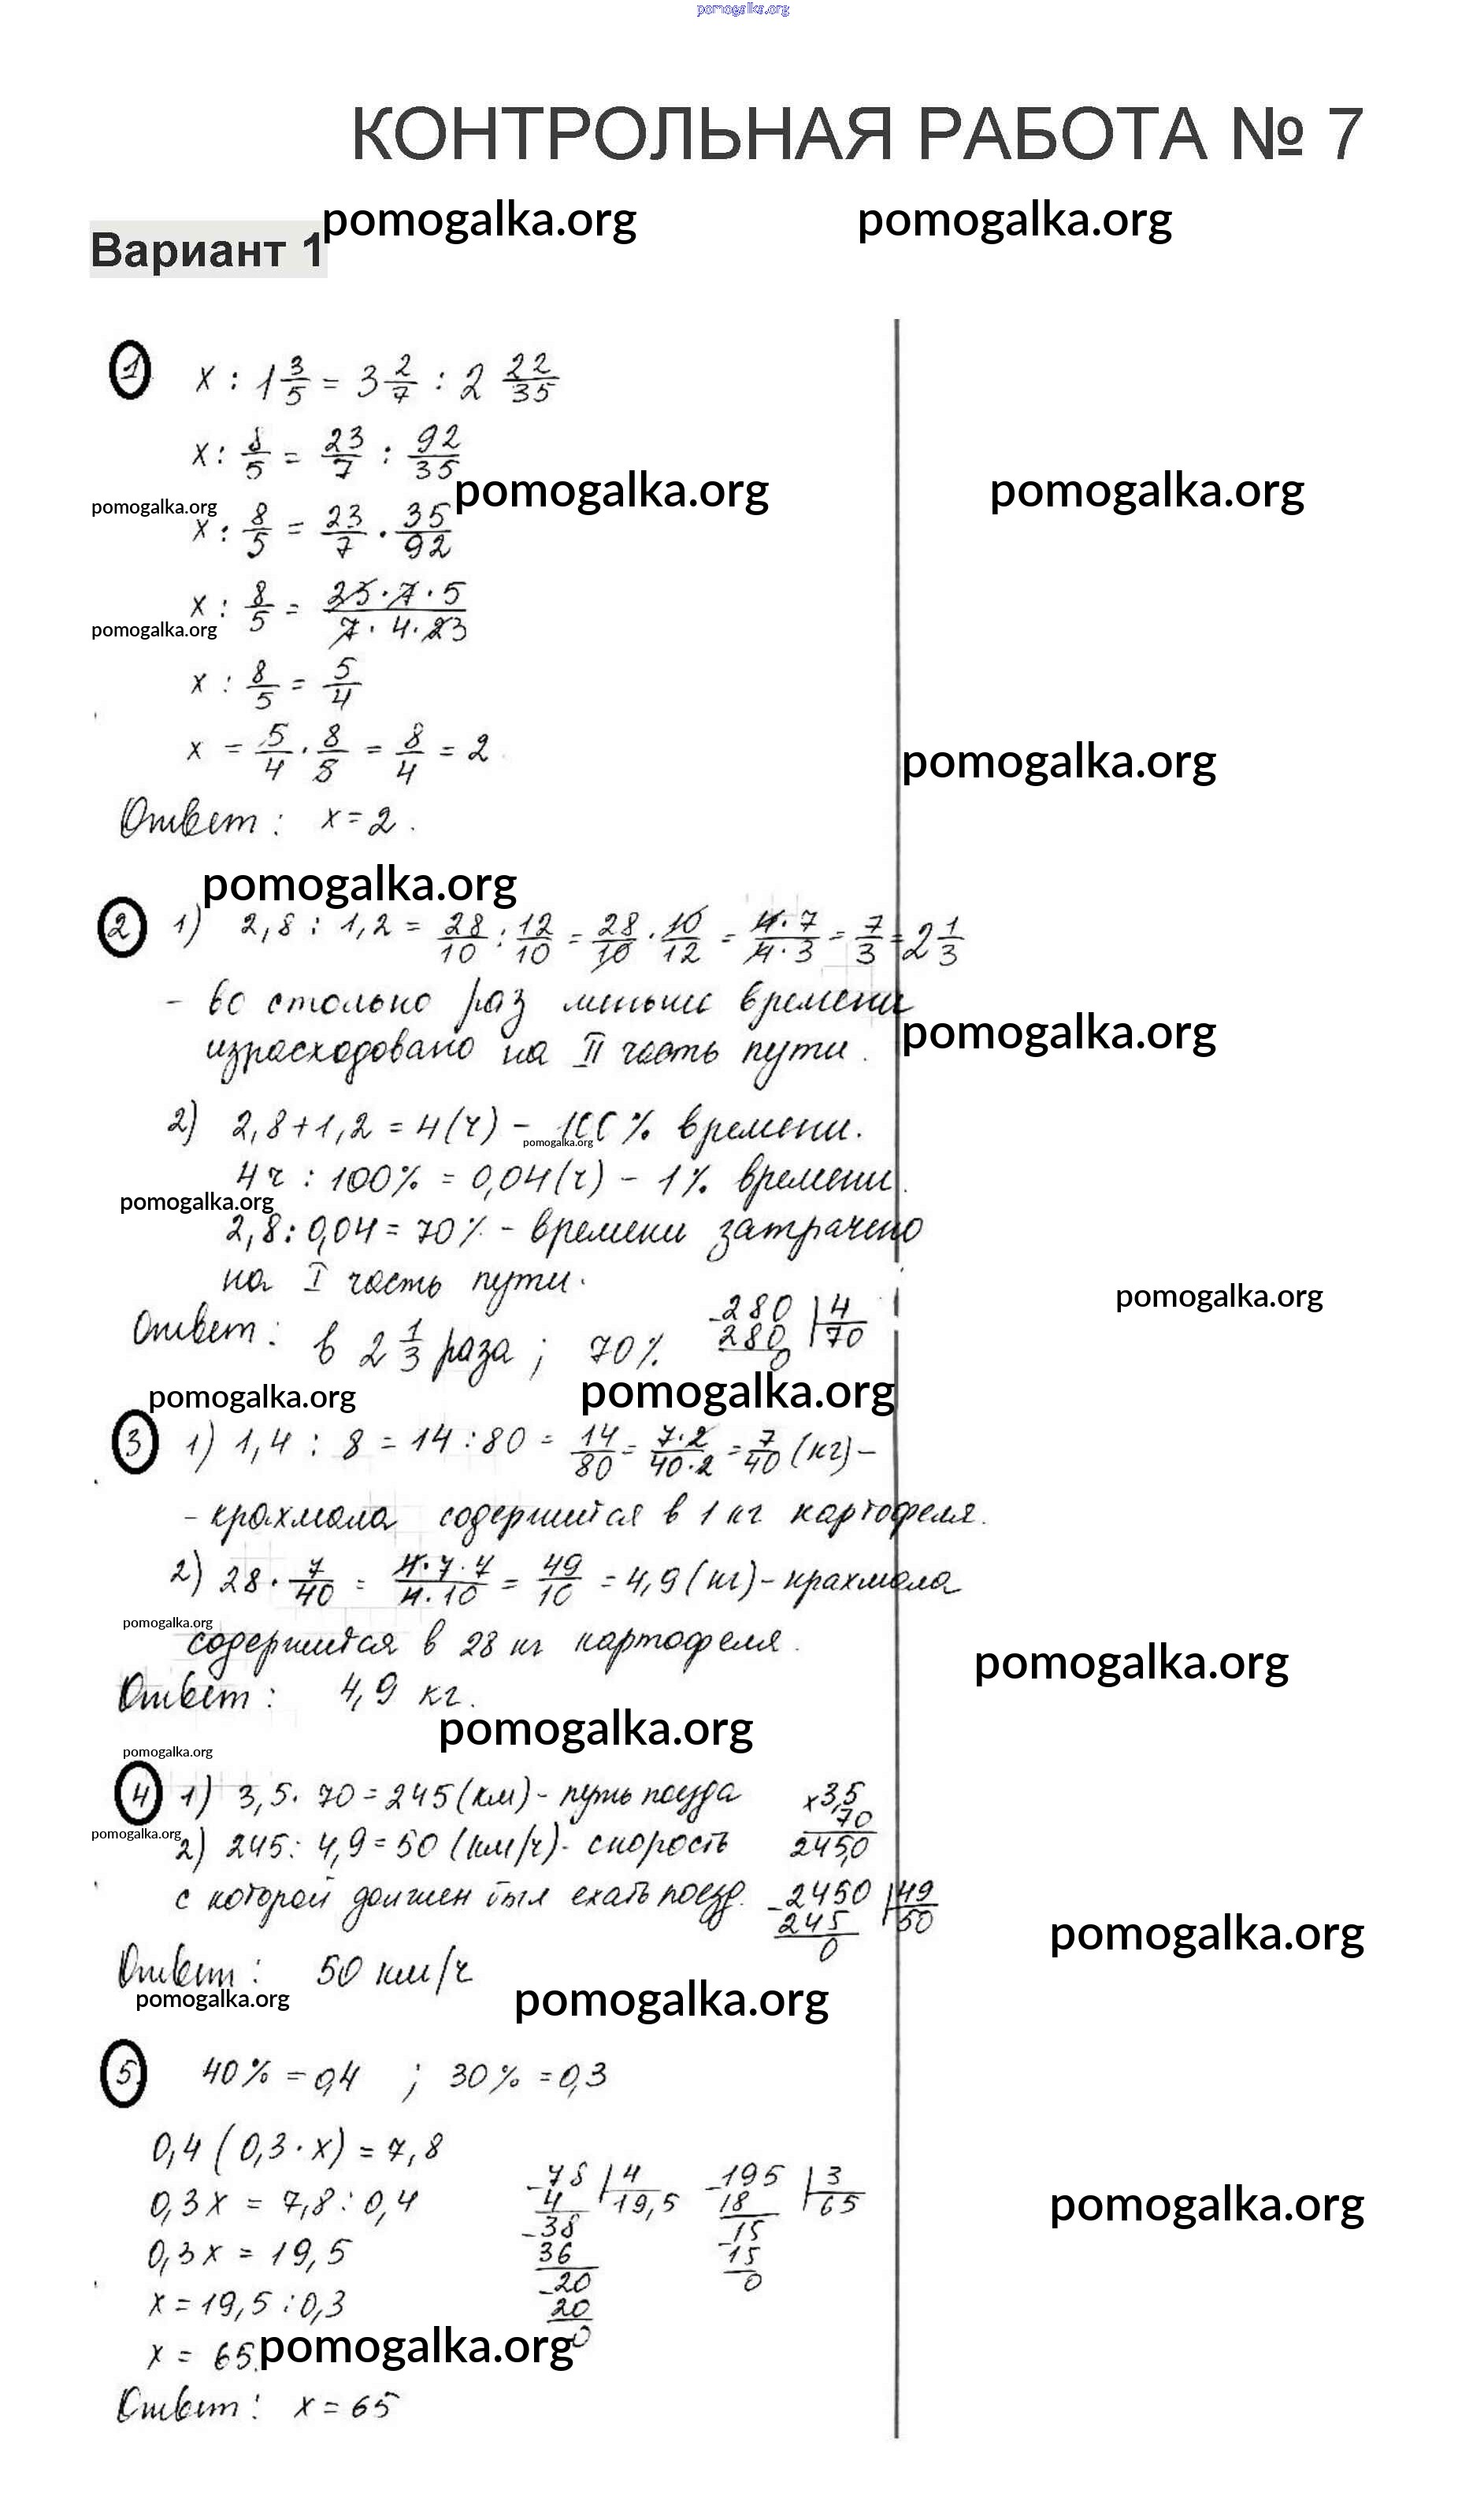 pomogalka.org
КОНТРОЛЬНАЯ РАБОТА № 7
pomogalka.org pomogalka.org
Вариант 1
1 x : 1 3/5 = 3 2/7 : 2 22/35
x : 8/5 = 23/7 : 92/35
pomogalka.org pomogalka.org
pomogalka.org
x : 8/5 = 23/7 · 35/92
x : 8/5 = 23·7·5/7·4·23
pomogalka.org
x : 8/5 = 5/4
x = 5/4 · 8/5 = 8/4 = 2
pomogalka.org
Ответ : x = 2 .
pomogalka.org
2 1) 2,8 : 1,2 = 28/10 : 12/10 = 28/10 · 10/12 = 4·7/4·3 = 7/3 = 2 1/3
- во столько раз меньше времени
pomogalka.org
израсходовано на II часть пути .
2) 2,8 + 1,2 = 4 (ч) - 100% времени.
pomogalka.org
4 ч : 100% = 0,04 (ч) - 1% времени.
pomogalka.org
2,8 : 0,04 = 70% - времени затрачено
на I часть пути.
pomogalka.org
Ответ : в 2 1/3 раза ; 70%
-280 | 4
280 | 70
0
pomogalka.org pomogalka.org
3 1) 1,4 : 8 = 14 : 80 = 14/80 = 7·2/40·2 = 7/40 (кг) -
- крахмала содержится в 1 кг картофеля.
2) 28 · 7/40 = 4·7·7/4·10 = 49/10 = 4,9 (кг) - крахмала
pomogalka.org
содержится в 28 кг картофеля .
pomogalka.org
Ответ : 4,9 кг .
pomogalka.org
pomogalka.org
4 1) 3,5 · 70 = 245 (км) - путь поезда
x 3,5
70
245,0
pomogalka.org
2) 245 : 4,9 = 50 (км/ч) - скорость
с которой должен был ехать поезд.
-2450 | 49
245 | 50
0
pomogalka.org
Ответ : 50 км/ч
pomogalka.org pomogalka.org
5 40% = 0,4 ; 30% = 0,3
0,4 (0,3 · x) = 7,8
0,3x = 7,8 : 0,4
0,3x = 19,5
x = 19,5 : 0,3
x = 65.
-78 | 4
4 | 19,5
-38
36
-20
20
0
-195 | 3
18 | 65
-15
15
0
pomogalka.org
pomogalka.org
Ответ : x = 65